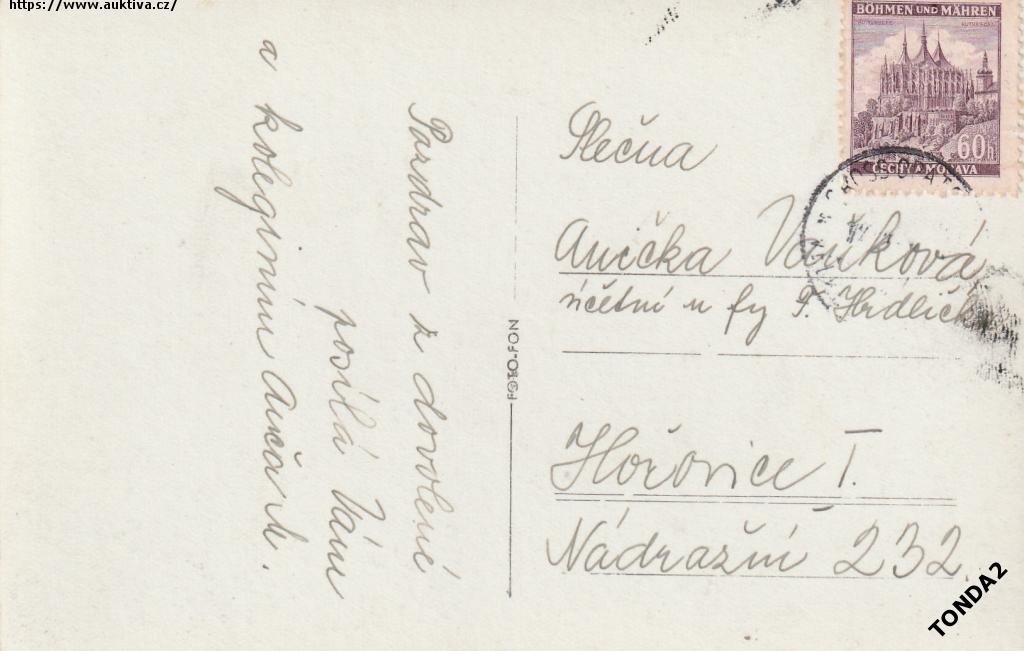 https://www.auktiva.cz/
Pozdrav z dovolené
posílá Vám
a kolegyním
FOTO-FON
BÖHMEN UND MÄHREN
60h
ČECHY A MORAVA
Slečna
Anička Vaňková
účetní u fy F. Hrdlička
Hořovice I.
Nádražní 232
TONDA2